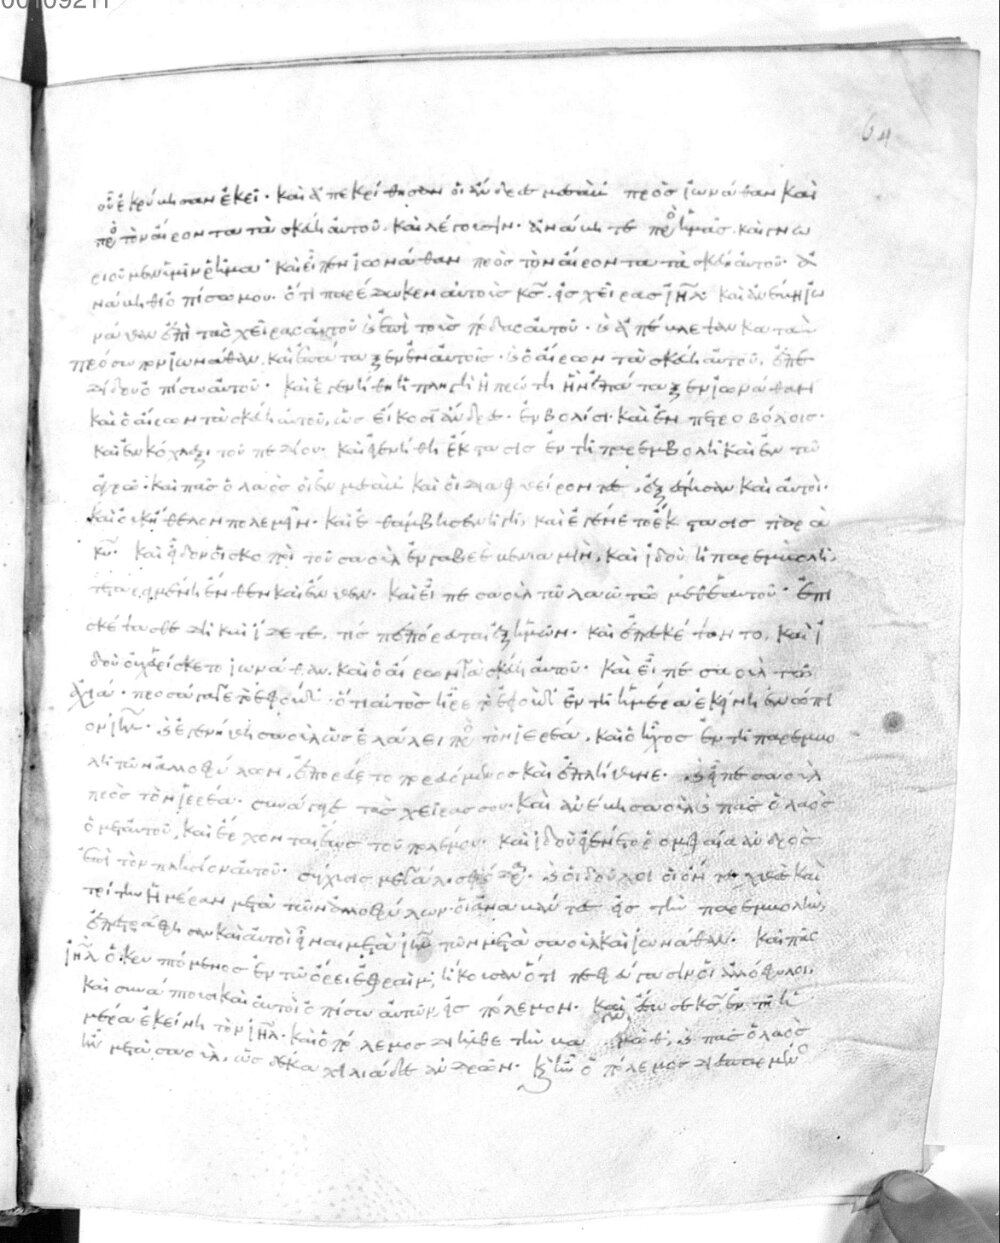 οὗ ἐκρύβησαν ἐκεῖ. καὶ ἀπεκρίθησαν οἱ ἄνδρες μεσαὺ πρὸς ἰωνάθαν καὶ
πρὸς τὸν αἴροντα τὰ σκεύη αὐτοῦ. καὶ λέγουσιν. ἀνάβητε πρὸς ἡμᾶς. καὶ γνω
ριοῦμεν ὑμῖν ῥῆμα. καὶ εἶπεν ἰωνάθαν πρὸς τὸν αἴροντα τὰ σκεύη αὐτοῦ. ἀ
νάβηθι ὀπίσω μου. ὅτι παρέδωκεν αὐτοὺς κς εἰς χεῖρας ιηλ. καὶ ἀνέβη ἰω
νάθαν ἐπὶ τὰς χεῖρας αὐτοῦ καὶ ἐπὶ τοὺς πόδας αὐτοῦ. καὶ ἀπέβλεψαν κατὰ
πρόσωπον ἰωνάθαν. καὶ ἐπάταξεν αὐτούς. καὶ ὁ αἴρων τὰ σκεύη αὐτοῦ, ἐπε
δίδου ὀπίσω αὐτοῦ. καὶ ἐγενήθη ἡ πληγὴ ἡ πρώτη ἣν ἐπάταξεν ἰωνάθαν
καὶ ὁ αἴρων τὰ σκεύη αὐτοῦ, ὡς εἴκοσι ἄνδρες. ἐν βολίσι. καὶ ἐν πετροβόλοις.
καὶ ἐν κόχλαξι τοῦ πεδίου. καὶ ἐγενήθη ἔκστασις ἐν τῇ παρεμβολῇ καὶ ἐν τῷ
ἀγρῷ. καὶ πᾶς ὁ λαὸς οἱ ἐν μεσαὺ καὶ οἱ διαφθείροντες, ἐξέστησαν καὶ αὐτοί.
καὶ οὐκ ἤθελον πολεμεῖν. καὶ ἐθαμβήθη ἡ γῆ, καὶ ἐγένετο ἔκστασις παρὰ
κυ. καὶ εἶδον οἱ σκοποὶ τοῦ σαοὺλ ἐν γαβεὲ βενιαμίν, καὶ ἰδοὺ ἡ παρεμβολὴ,
τεταραγμένη ἔνθεν καὶ ἔνθεν. καὶ εἶπε σαοὺλ τῷ λαῷ τῷ μετ' αὐτοῦ. ἐπι
σκέψασθε δὴ καὶ ἴδετε, τίς πεπόρευται ἐξ ἡμῶν. καὶ ἐπεσκέψαντο, καὶ ἰ
δοὺ οὐχ εὑρίσκετο ἰωνάθαν. καὶ ὁ αἴρων τὰ σκεύη αὐτοῦ. καὶ εἶπε σαοὺλ τῷ
ἀχιά. προσάγαγε τὸ ἐφούδ. ὅτι αὐτὸς ἦρε τὸ ἐφοὺδ ἐν τῇ ἡμέρα ἐκείνη ἐνώπι
ον ιηλ. καὶ ἐγενήθη σαοὺλ ὡς ἐλάλει πρὸς τὸν ἱερέα, καὶ ὁ ἦχος ἐν τῇ παρεμβο
λῇ τῶν ἀλλοφύλων, ἐπορεύετο πορευόμενος καὶ ἐπλήθυνε. καὶ εἶπε σαοὺλ
πρὸς τὸν ἱερέα. συνάγαγε τὰς χεῖρας σου. καὶ ἀνέβη σαοὺλ καὶ πᾶς ὁ λαὸς
ὁ μετ' αὐτοῦ, καὶ ἔρχονται ἕως τοῦ πολέμου. καὶ ἰδοὺ ἐγένετο ῥομφαία ἀνδρὸς
ἐπὶ τὸν πλησίον αὐτοῦ. σύγχυσις μεγάλη σφόδρα. καὶ οἱ δοῦλοι οἱ ὄντες χθὲς καὶ
τρίτην ἡμέραν μετὰ τῶν ἀλλοφύλων. οἱ ἀναβάντες εἰς τὴν παρεμβολὴν,
ἐπεστράφησαν καὶ αὐτοὶ εἶναι μετὰ ιηλ τῶν μετὰ σαοὺλ καὶ ἰωνάθαν. καὶ πᾶς
ιηλ ὁ κρυπτόμενος ἐν τῷ ὄρει ἐφραΐμ, ἤκουσαν ὅτι πεφεύγασιν οἱ ἀλλόφυλοι.
καὶ συνάπτουσι καὶ αὐτοὶ ὀπίσω αὐτῶν εἰς πόλεμον. καὶ ἔσωσε κς ἐν τῇ ἡ
μέρα ἐκείνη τὸν ιηλ. καὶ ὁ πόλεμος διῆλθε τὴν καὶ πᾶς ὁ λαὸς
ἦν μετὰ σαοὺλ, ὡς δέκα χιλιάδες ἀνδρῶν. καὶ ἦν ὁ πόλεμος διεσπαρμένος